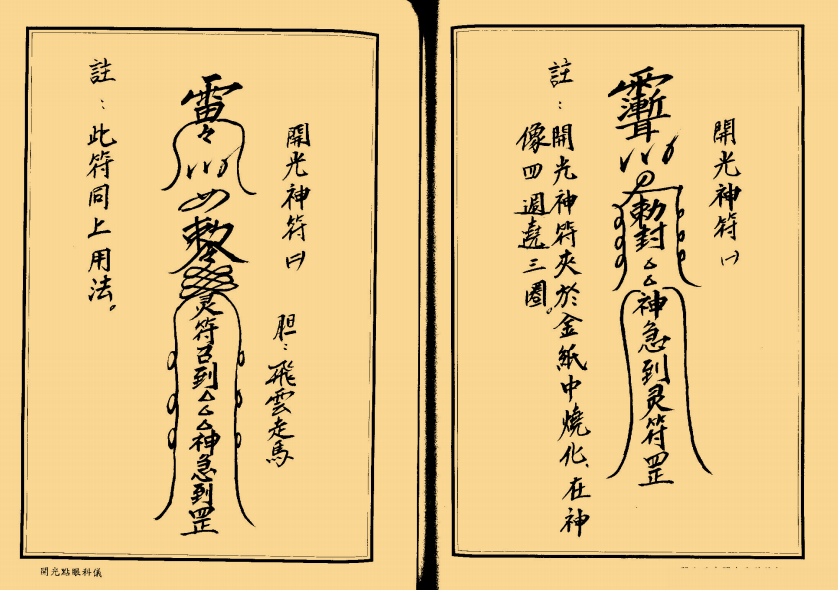 開光神符㈠
勅封
神急到灵符罡
註：開光神符夾於金紙中燒化、在神
像四週遶三圈。
開光神符㈡
胆：飛雲走馬
雷
勅
灵符召到
神急到罡
註：此符同上用法。
開光點眼科儀